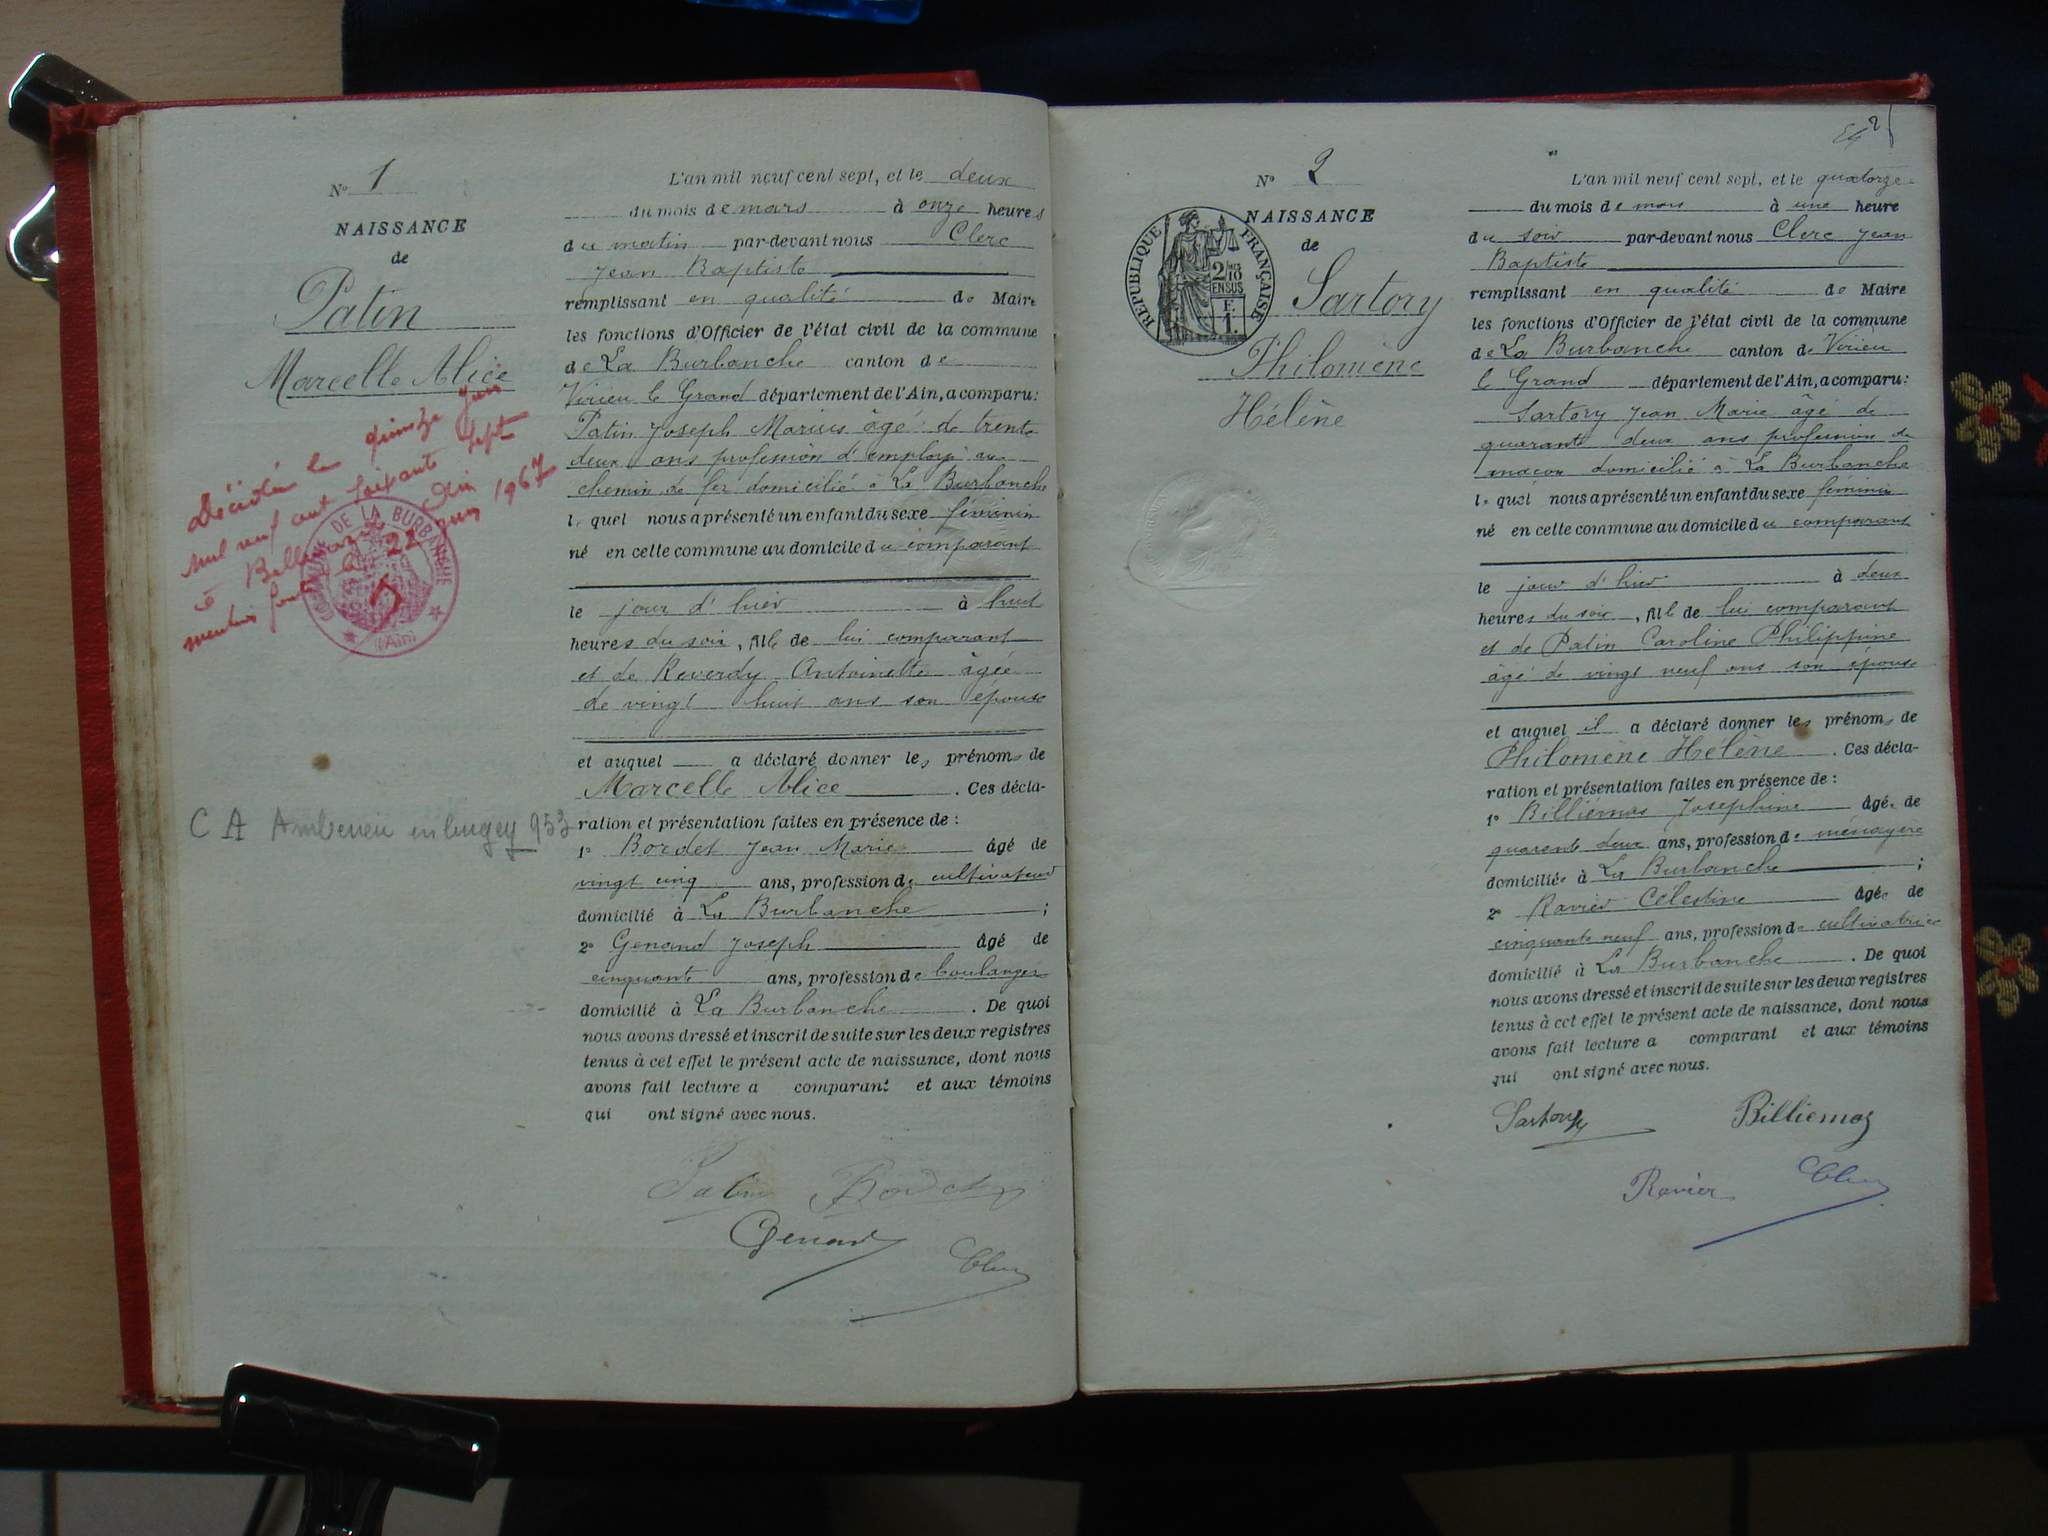 N° 1
NAISSANCE
de
Patin
Marcelle Alice
Décédée le quinze juin
mil neuf cent soixante sept
à
mention 22 juin 1967
COMMUNE DE LA BURBANCHE
(Ain)
C A Amberieu en bugey 953
L'an mil neuf cent sept, et le deux
du mois de mars à onze heures
du matin par-devant nous Clerc
Jean Baptiste
remplissant en qualité de Maire
les fonctions d'Officier de l'état civil de la commune
de La Burbanche canton de
Virieu le Grand département de l'Ain, a comparu:
Patin Joseph Marius âgé de trente
deux ans profession d'employé au
chemin de fer domicilié à La Burbanche
lequel nous a présenté un enfant du sexe féminin
né en cette commune au domicile du comparant
le jour d'hier à huit
heures du soir, fille de lui comparant
et de Reverdy Antoinette âgée
de vingt huit ans son épouse
et auquel a déclaré donner les prénoms de
Marcelle Alice. Ces décla-
ration et présentation faites en présence de :
1° Bordet Jean Marie âgé de
vingt cinq ans, profession de cultivateur
domicilié à La Burbanche ;
2° Genand Joseph âgé de
cinquante ans, profession de boulanger
domicilié à La Burbanche. De quoi
nous avons dressé et inscrit de suite sur les deux registres
tenus à cet effet le présent acte de naissance, dont nous
avons fait lecture a comparant et aux témoins
qui ont signé avec nous.
Patin Bordet
Genand Clerc
2
N° 2
NAISSANCE
de
Sartory
Philomène
Hélène
RÉPUBLIQUE FRANÇAISE
2/10 EN SUS
F. 1.
L'an mil neuf cent sept, et le quatorze
du mois de mars à une heure
du soir par-devant nous Clerc Jean
Baptiste
remplissant en qualité de Maire
les fonctions d'Officier de l'état civil de la commune
de La Burbanche canton de Virieu
le Grand département de l'Ain, a comparu:
Sartory Jean Marie âgé de
quarante deux ans profession de
maçon domicilié à La Burbanche
lequel nous a présenté un enfant du sexe féminin
né en cette commune au domicile du comparant
le jour d'hier à deux
heures du soir, fille de lui comparant
et de Patin Caroline Philippine
âgé de vingt neuf ans son épouse
et auquel il a déclaré donner les prénoms de
Philomène Hélène. Ces décla-
ration et présentation faites en présence de :
1° Billiémaz Josephine âgée de
quarente deux ans, profession de ménagère
domiciliée à La Burbanche ;
2° Ravier Célestine âgée de
cinquante neuf ans, profession de cultivatrice
domicilié à La Burbanche. De quoi
nous avons dressé et inscrit de suite sur les deux registres
tenus à cet effet le présent acte de naissance, dont nous
avons fait lecture a comparant et aux témoins
qui ont signé avec nous.
Sartory Billiemaz
Ravier Clerc